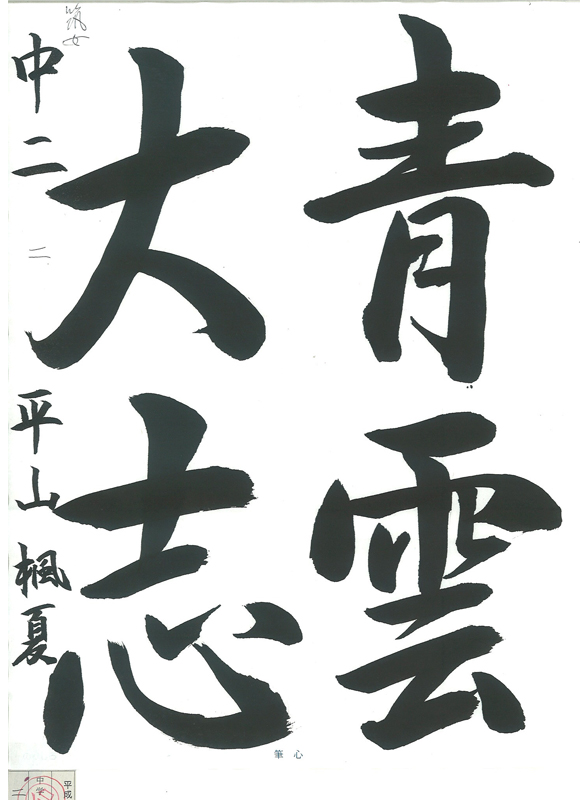 青雲
大志
中二 平山楓夏
二
筑女
心筆
平成
中学
二